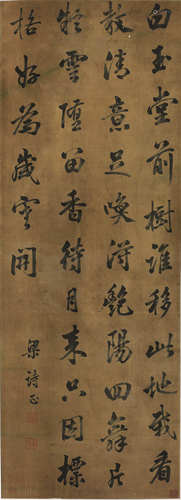 白玉堂前樹誰移此地栽看
教清意足喚得艷陽回舞片
凝雲墮留香待月来只因標
格好為歲寒開
梁詩正